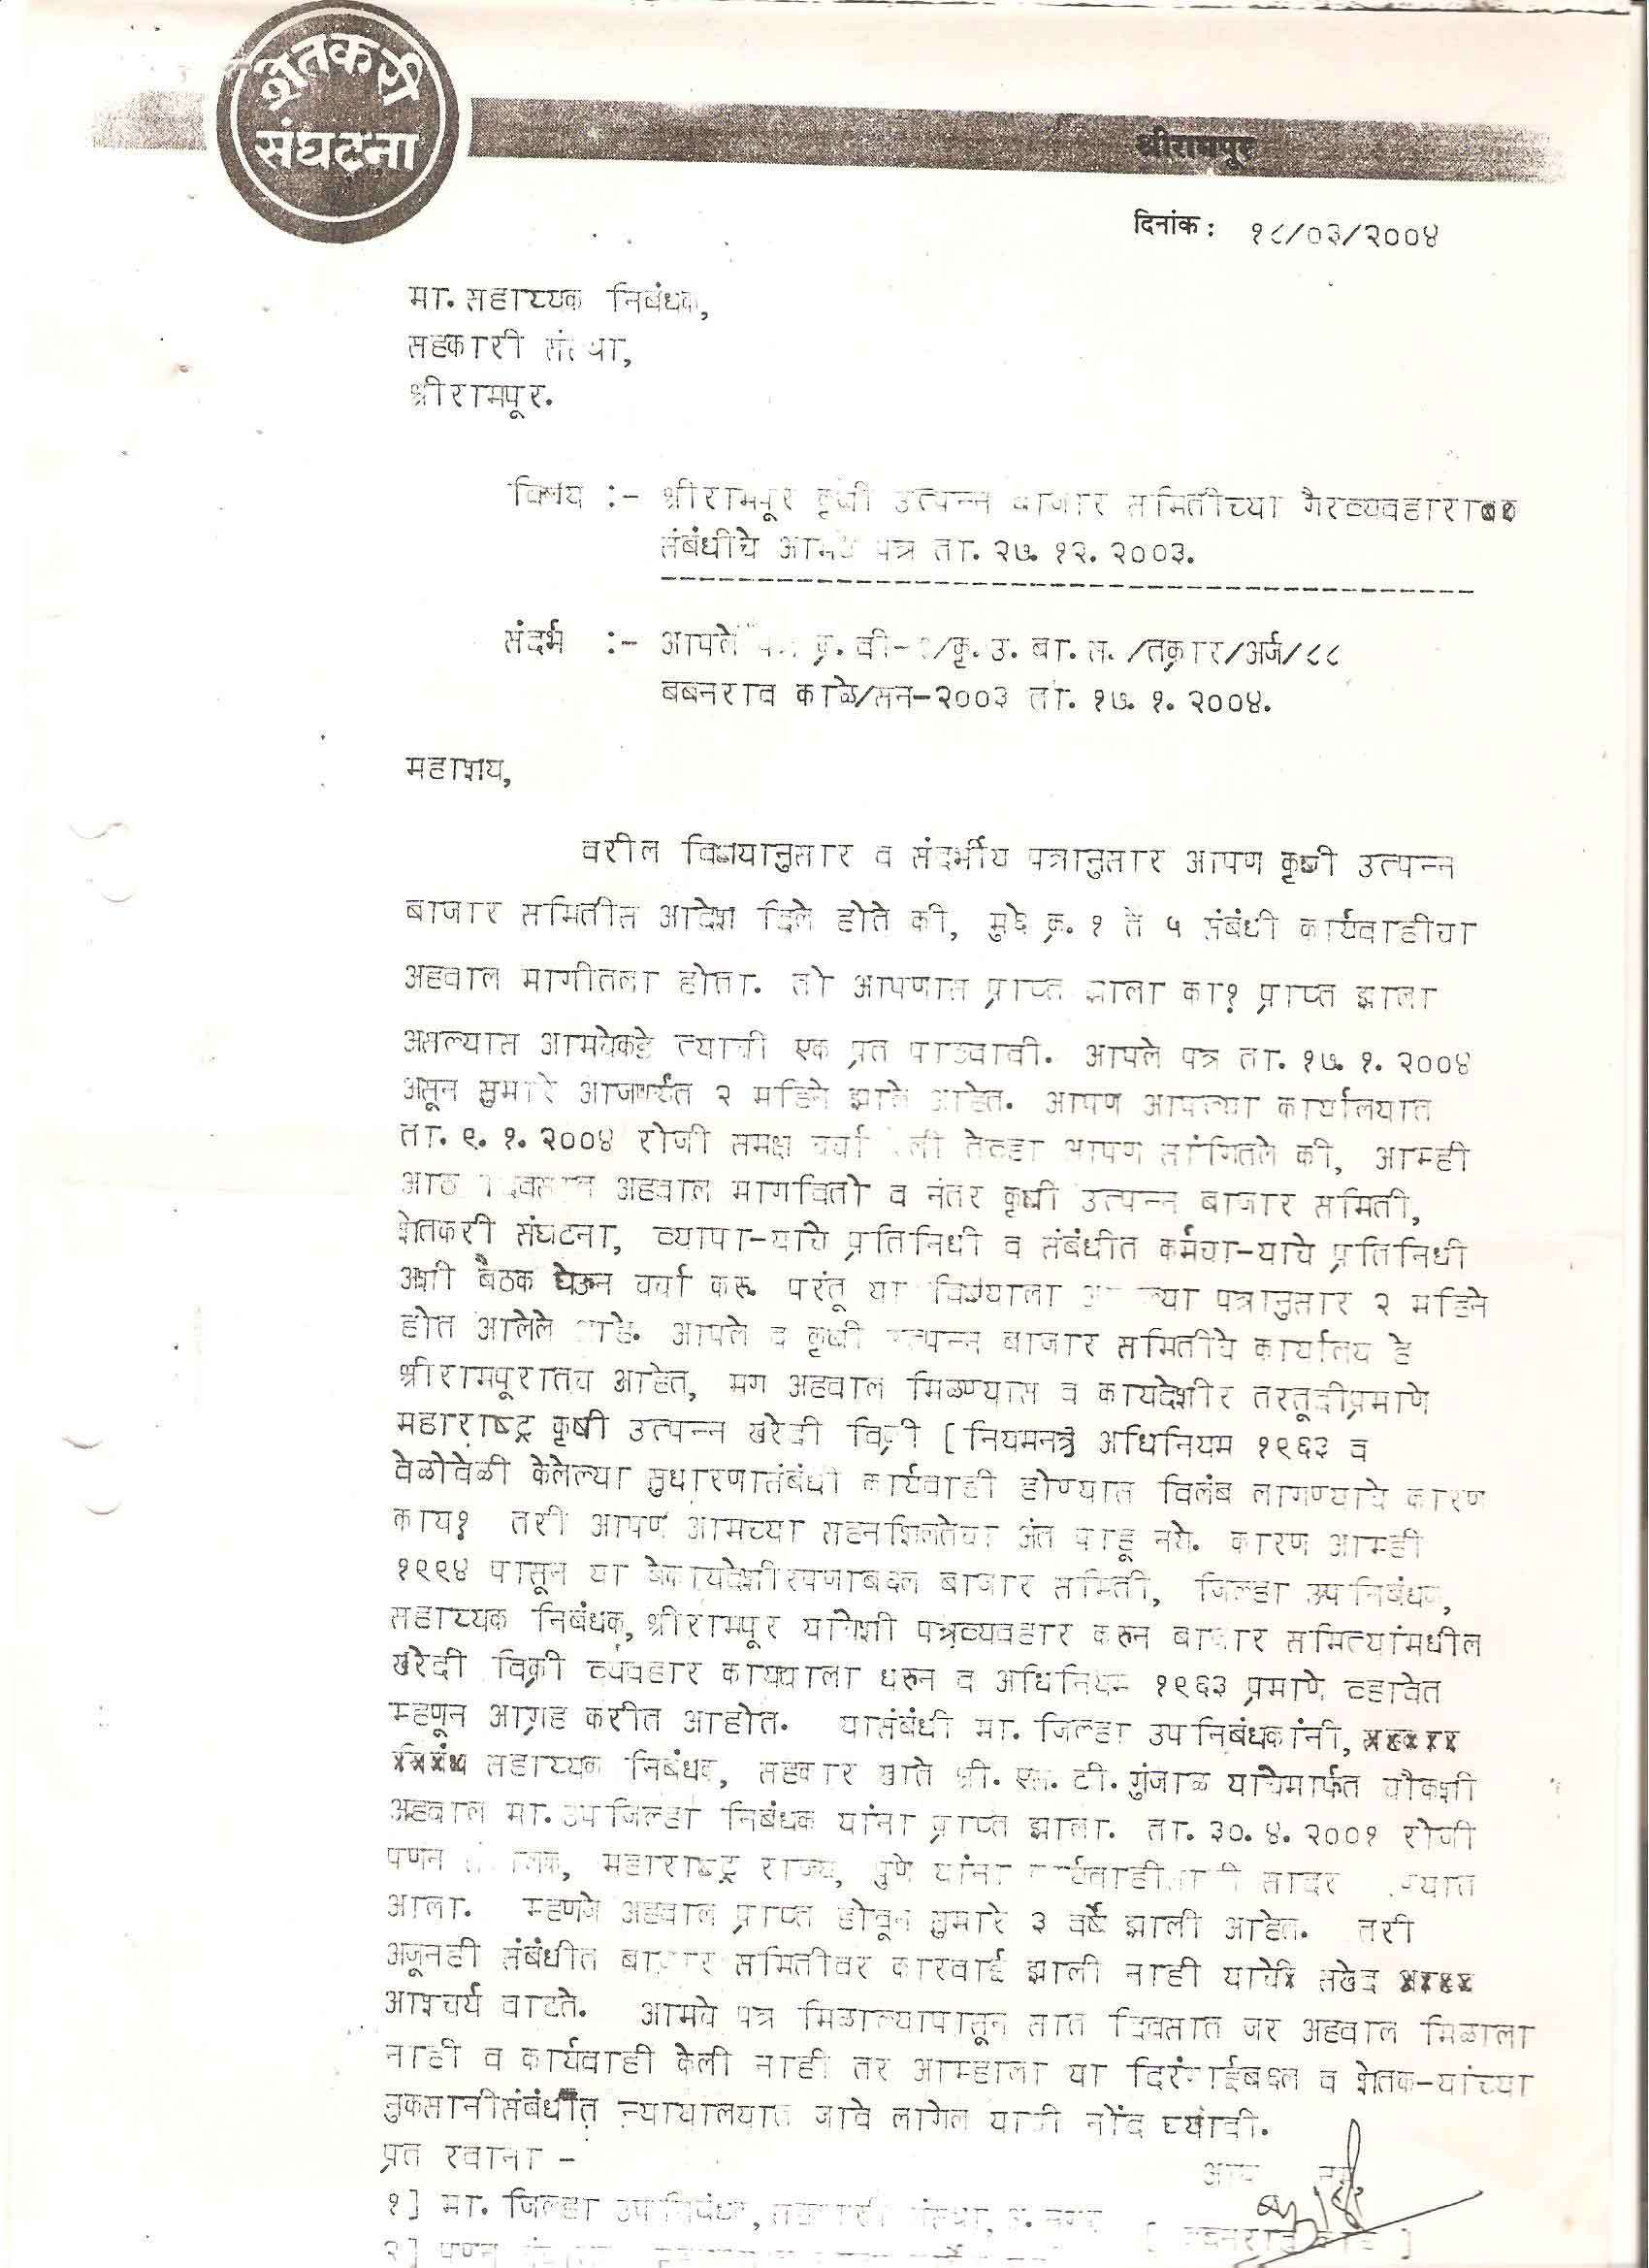 शेतकरी
संघटना
श्रीरामपूर
दिनांक : १८/०३/२००४
मा. सहाय्यक निबंधक,
सहकारी संस्था,
श्रीरामपूर.
विषय :- श्रीरामपूर कृषी उत्पन्न बाजार समितीच्या गैरव्यवहारा
संबंधीचे आमचे पत्र ता. २७. १२. २००३.
संदर्भ :- आपले पत्र क्र. वी- /कृ. उ. बा. स. /तक्रार/अर्ज/८८
बबनराव काळे/सन-२००३ ता. १७. १. २००४.
महाशय,
वरील विषयानुसार व संदर्भीय पत्रानुसार आपण कृषी उत्पन्न
बाजार समितीस आदेश दिले होते की, मुद्दे क्र. १ ते ५ संबंधी कार्यवाहीचा
अहवाल मागीतला होता. तो आपणास प्राप्त झाला का? प्राप्त झाला
असल्यास आमचेकडे त्याची एक प्रत पाठवावी. आपले पत्र ता. १७. १. २००४
असून सुमारे आजपर्यंत २ महिने झाले आहेत. आपण आपल्या कार्यालयात
ता. ९. १. २००४ रोजी समक्ष चर्चा केली तेव्हा आपण सांगितले की, आम्ही
आठ दिवसात अहवाल मागवितो व नंतर कृषी उत्पन्न बाजार समिती,
शेतकरी संघटना, व्यापा-याचे प्रतिनिधी व संबंधीत कर्मचा-याचे प्रतिनिधी
अशी बैठक घेऊन चर्चा करू. परंतू या विषयाला आपल्या पत्रानुसार २ महिने
होत आलेले आहे. आपले व कृषी उत्पन्न बाजार समितीचे कार्यालय हे
श्रीरामपूरातच आहेत, मग अहवाल मिळण्यास व कायदेशीर तरतूदीप्रमाणे
महाराष्ट्र कृषी उत्पन्न खरेदी विक्री [ नियमनत्र] अधिनियम १९६३ व
वेळोवेळी केलेल्या सुधारणासंबंधी कार्यवाही होण्यात विलंब लागण्याचे कारण
काय? तरी आपण आमच्या सहनशिलतेचा अंत पाहू नये. कारण आम्ही
१९९४ पासून या बेकायदेशीरपणाबद्दल बाजार समिती, जिल्हा उपनिबंधक,
सहाय्यक निबंधक, श्रीरामपूर यांचेशी पत्रव्यवहार करुन बाजार समित्यांमधील
खरेदी विक्री व्यवहार कायद्याला धरुन व अधिनियम १९६३ प्रमाणे व्हावेत
म्हणून आग्रह करीत आहोत. यासंबंधी मा. जिल्हा उपनिबंधकांनी,
सहाय्यक निबंधक, सहकार खाते श्री. एस. टी. गुंजाळ यांचेमार्फत चौकशी
अहवाल मा. उपजिल्हा निबंधक यांना प्राप्त झाला. ता. ३०. ४. २००१ रोजी
पणन संचालक, महाराष्ट्र राज्य, पुणे यांना कार्यवाहीसाठी सादर करण्यात
आला. म्हणजे अहवाल प्राप्त होवून सुमारे ३ वर्षे झाली आहेत. तरी
अजूनही संबंधीत बाजार समितीवर कारवाई झाली नाही याचे सखेद
आश्चर्य वाटते. आमचे पत्र मिळाल्यापासून सात दिवसात जर अहवाल मिळाला
नाही व कार्यवाही केली नाही तर आम्हाला या दिरंगाईबद्दल व शेतक-यांच्या
नुकसानीसंबंधीत न्यायालयात जावे लागेल याची नोंद घ्यावी.
प्रत रवाना -
१] मा. जिल्हा उपनिबंधक, सहकारी संस्था, अ. नगर
२] पणन